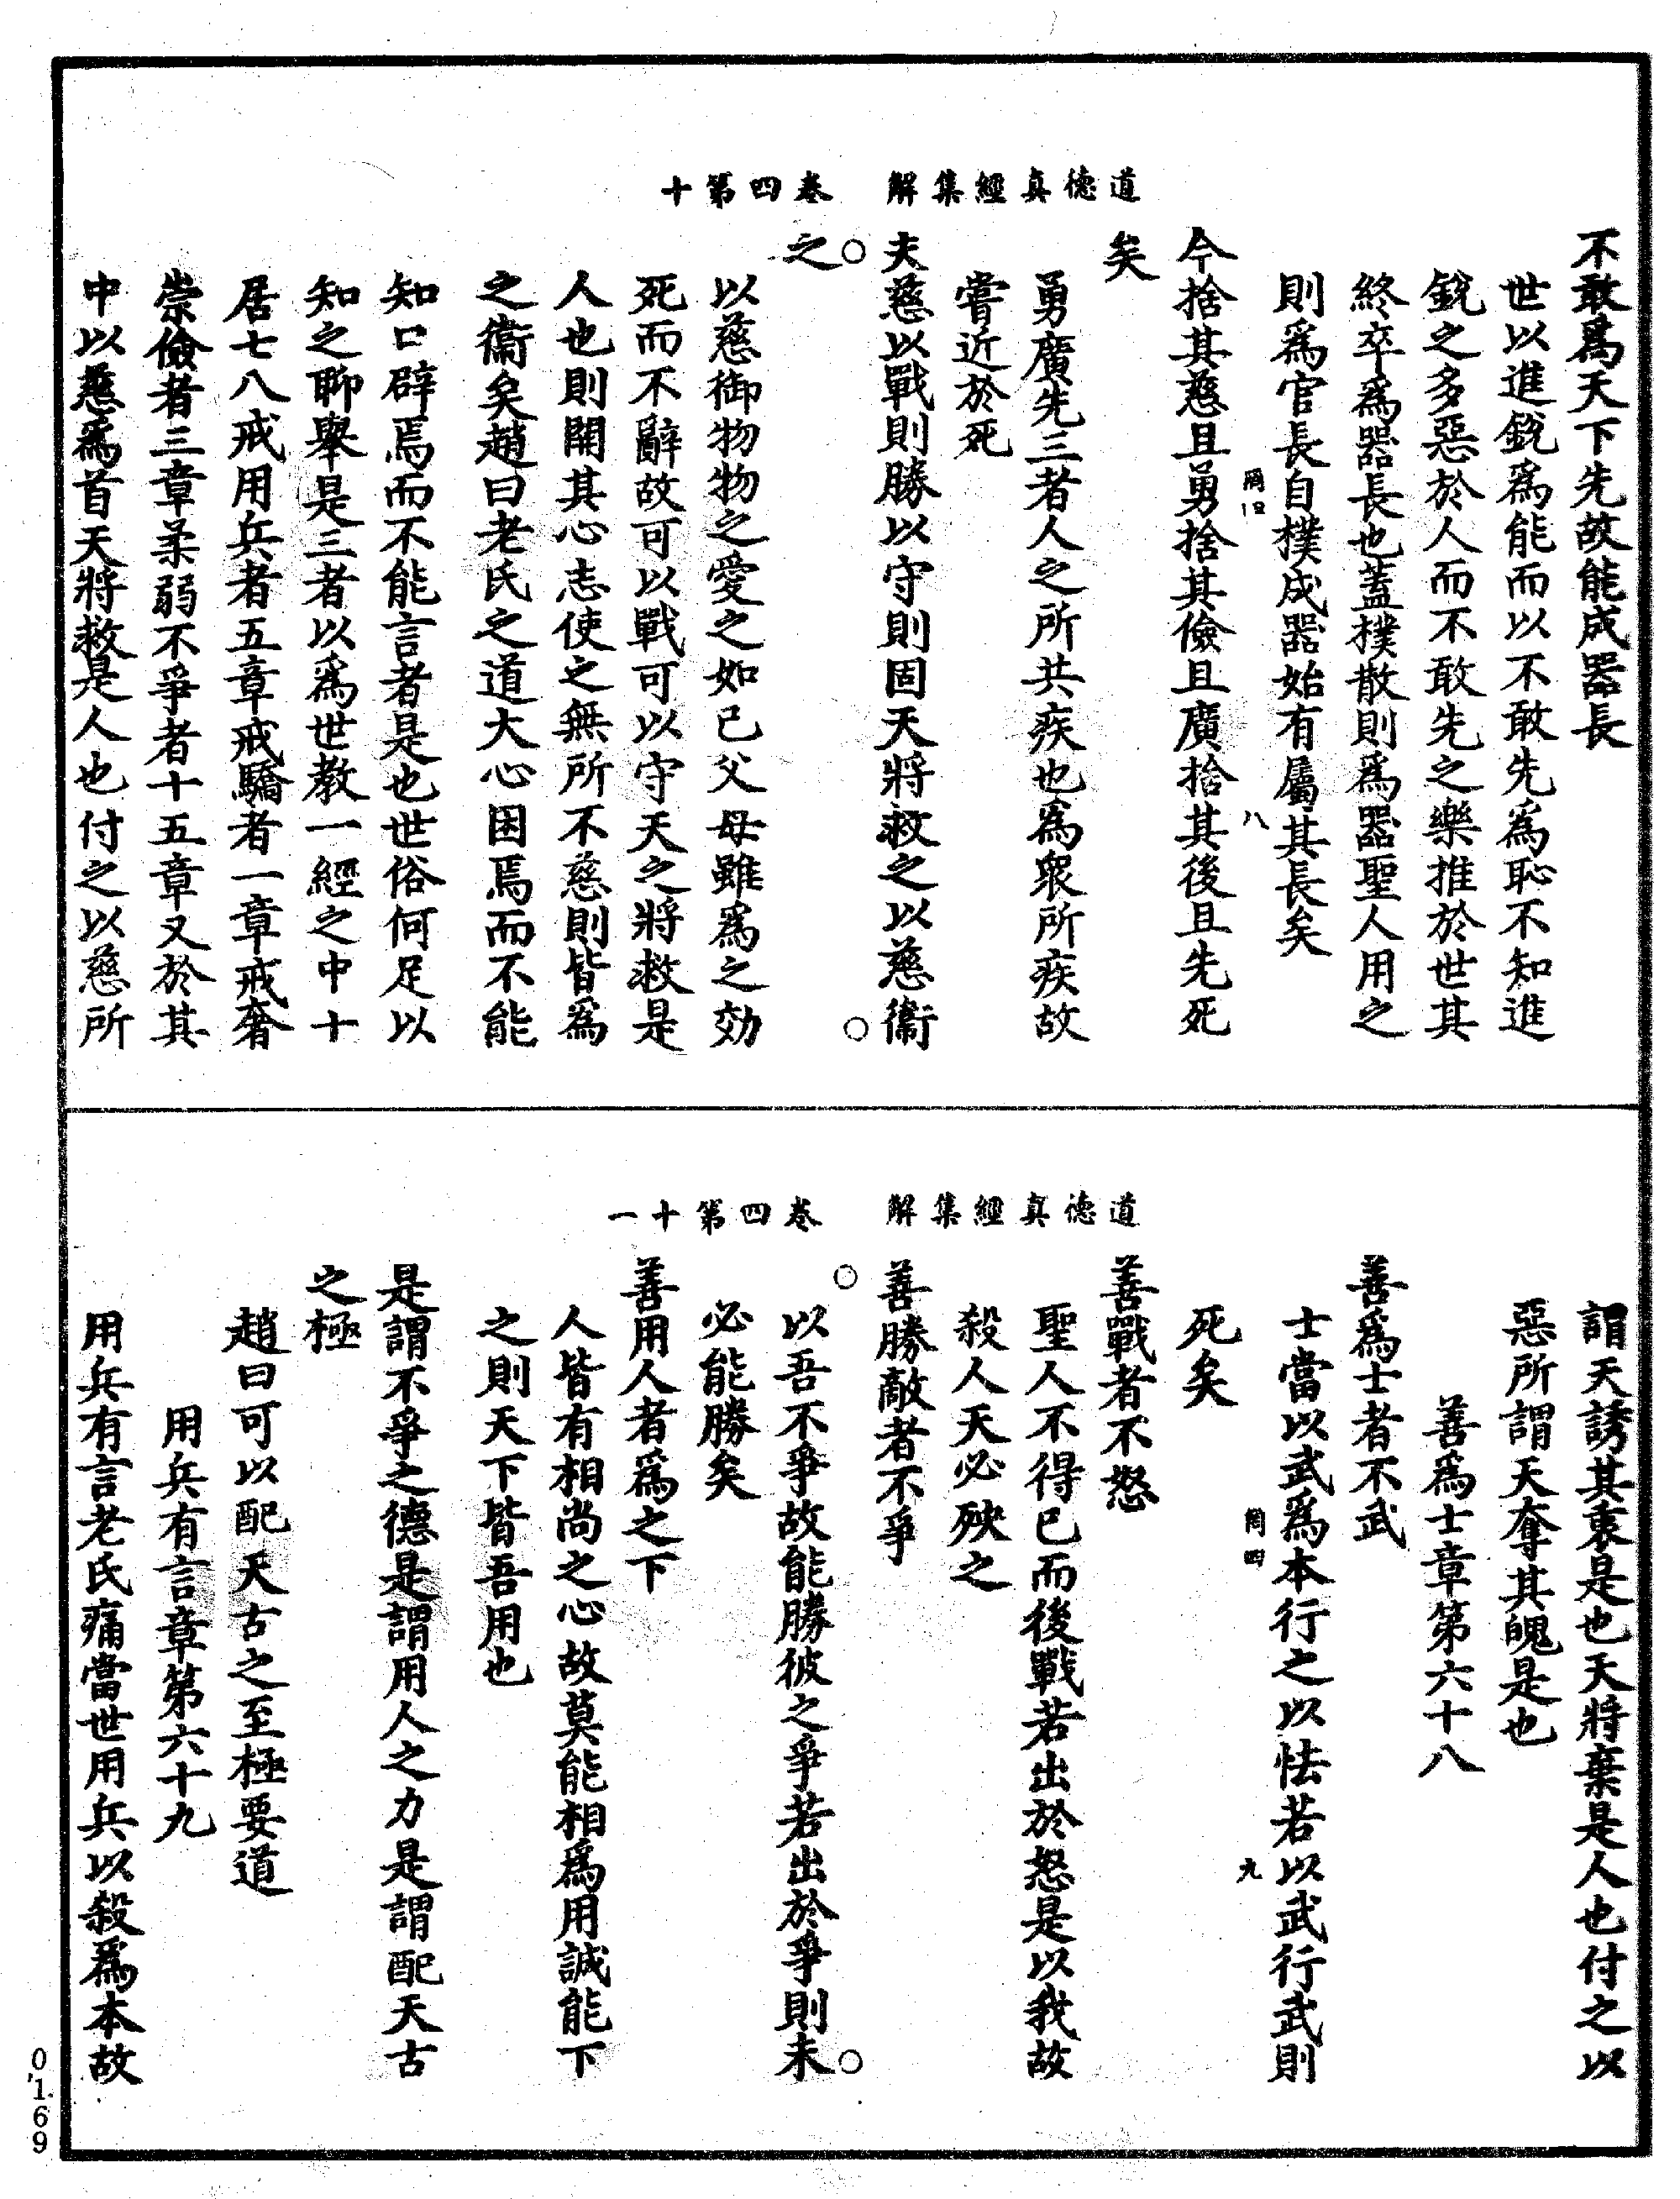 道德真經集解　卷四第十
不敢爲天下先故能成器長
世以進銳爲能而以不敢先爲恥不知進
銳之多惡於人而不敢先之樂推於世其
終卒爲器長也蓋樸散則爲器聖人用之
則爲官長自樸成器始有屬其長矣
八
今捨其慈且勇捨其儉且廣捨其後且先死
矣
勇廣先三者人之所共疾也爲衆所疾故
嘗近於死
夫慈以戰則勝以守則固天將救之以慈衞
之
以慈御物物之愛之如己父母雖爲之効
死而不辭故可以戰可以守天之將救是
人也則開其心志使之無所不慈則皆爲
之衞矣趙曰老氏之道大心困焉而不能
知口辟焉而不能言者是也世俗何足以
知之聊舉是三者以爲世教一經之中十
居七八戒用兵者五章戒驕者一章戒奢
崇儉者三章柔弱不爭者十五章又於其
中以慈爲首天將救是人也付之以慈所
道德真經集解　卷四第十一
謂天誘其衷是也天將棄是人也付之以
惡所謂天奪其魄是也
善爲士章第六十八
善爲士者不武
士當以武爲本行之以怯若以武行武則
罔四　九
死矣
善戰者不怒
聖人不得已而後戰若出於怒是以我故
殺人天必殃之
善勝敵者不爭
以吾不爭故能勝彼之爭若出於爭則未
必能勝矣
善用人者爲之下
人皆有相尚之心故莫能相爲用誠能下
之則天下皆吾用也
是謂不爭之德是謂用人之力是謂配天古
之極
趙曰可以配天古之至極要道
用兵有言章第六十九
用兵有言老氏痛當世用兵以殺爲本故
0169